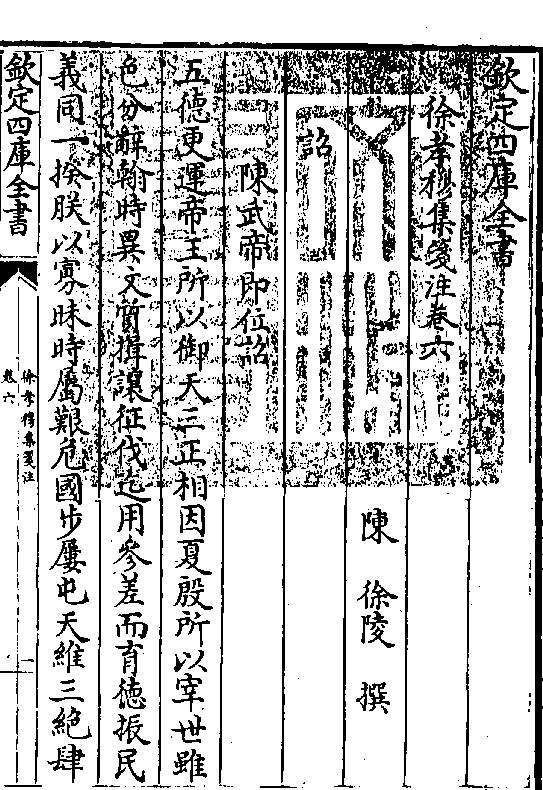 欽定四庫全書
徐孝穆集箋注卷六
陳 徐陵 撰
詔
陳武帝即位詔
五德更運帝王所以御天三正相因夏殷所以宰世雖
色分辭翰時異文質揖讓征伐迄用參差而育徳振民
義同一揆朕以寡昧時屬艱危國步屢屯天維三絶肆
欽定四庫全書
徐孝穆集箋注
卷六
一